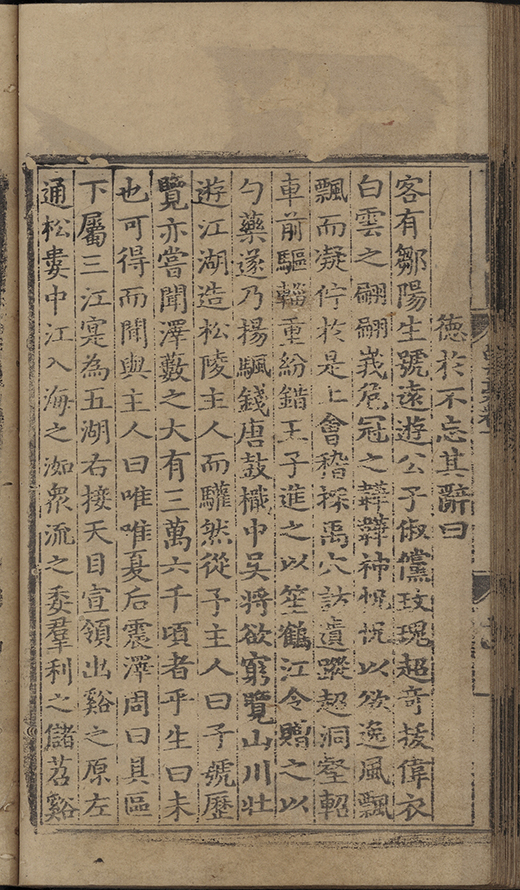 德於不忘其辭曰
客有鄒陽生號遠遊公子俶儻玫瑰超奇拔偉衣
白雲之翩翩峩危冠之韡韡神怳怳以欲逸風飄
飄而凝佇於是上會稽探禹穴訪遺蹤超洞壑軺
車前驅輜重紛錯王子進之以笙鶴江令贈之以
勺藥遂乃揚颿錢唐鼓檝中吳將欲窮覽山川壯
遊江湖造松陵主人而驩然從予主人曰子號歷
覽亦嘗聞澤藪之大有三萬六千頃者乎生曰未
也可得而聞與主人曰唯唯夏后震澤周曰具區
下屬三江寔為五湖右接天目宣領出谿之原左
通松婁中江入海之洳眾流之委羣利之儲苕谿